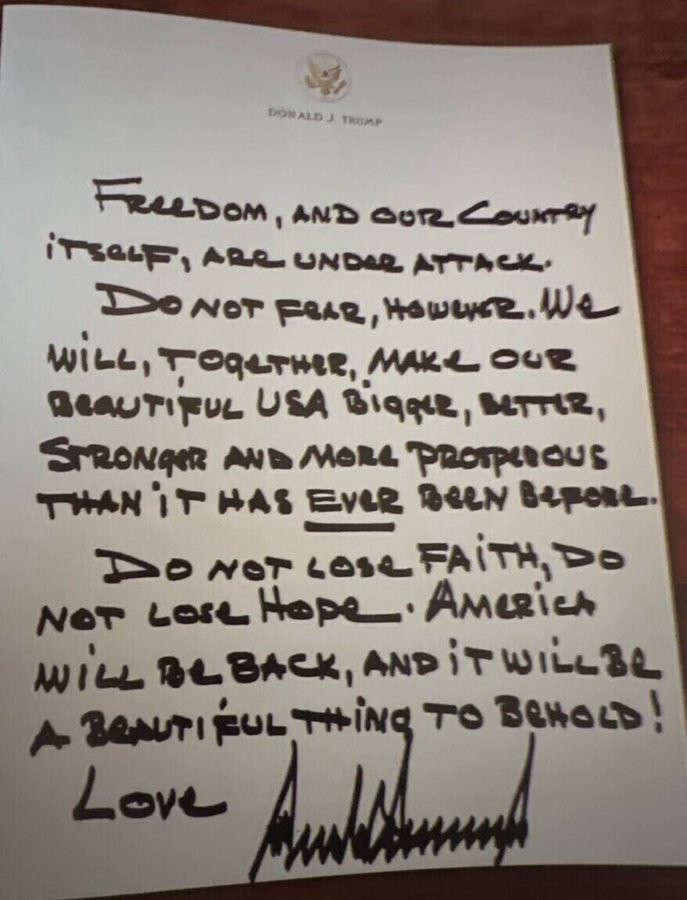 DONALD J. TRUMP
FREEDOM, AND OUR COUNTRY
ITSELF, ARE UNDER ATTACK.
DO NOT FEAR, HOWEVER. WE
WILL, TOGETHER, MAKE OUR
BEAUTIFUL USA BIGGER, BETTER,
STRONGER AND MORE PROSPEROUS
THAN IT HAS EVER BEEN BEFORE.
DO NOT LOSE FAITH, DO
NOT LOSE HOPE. AMERICA
WILL BE BACK, AND IT WILL BE
A BEAUTIFUL THING TO BEHOLD!
LOVE